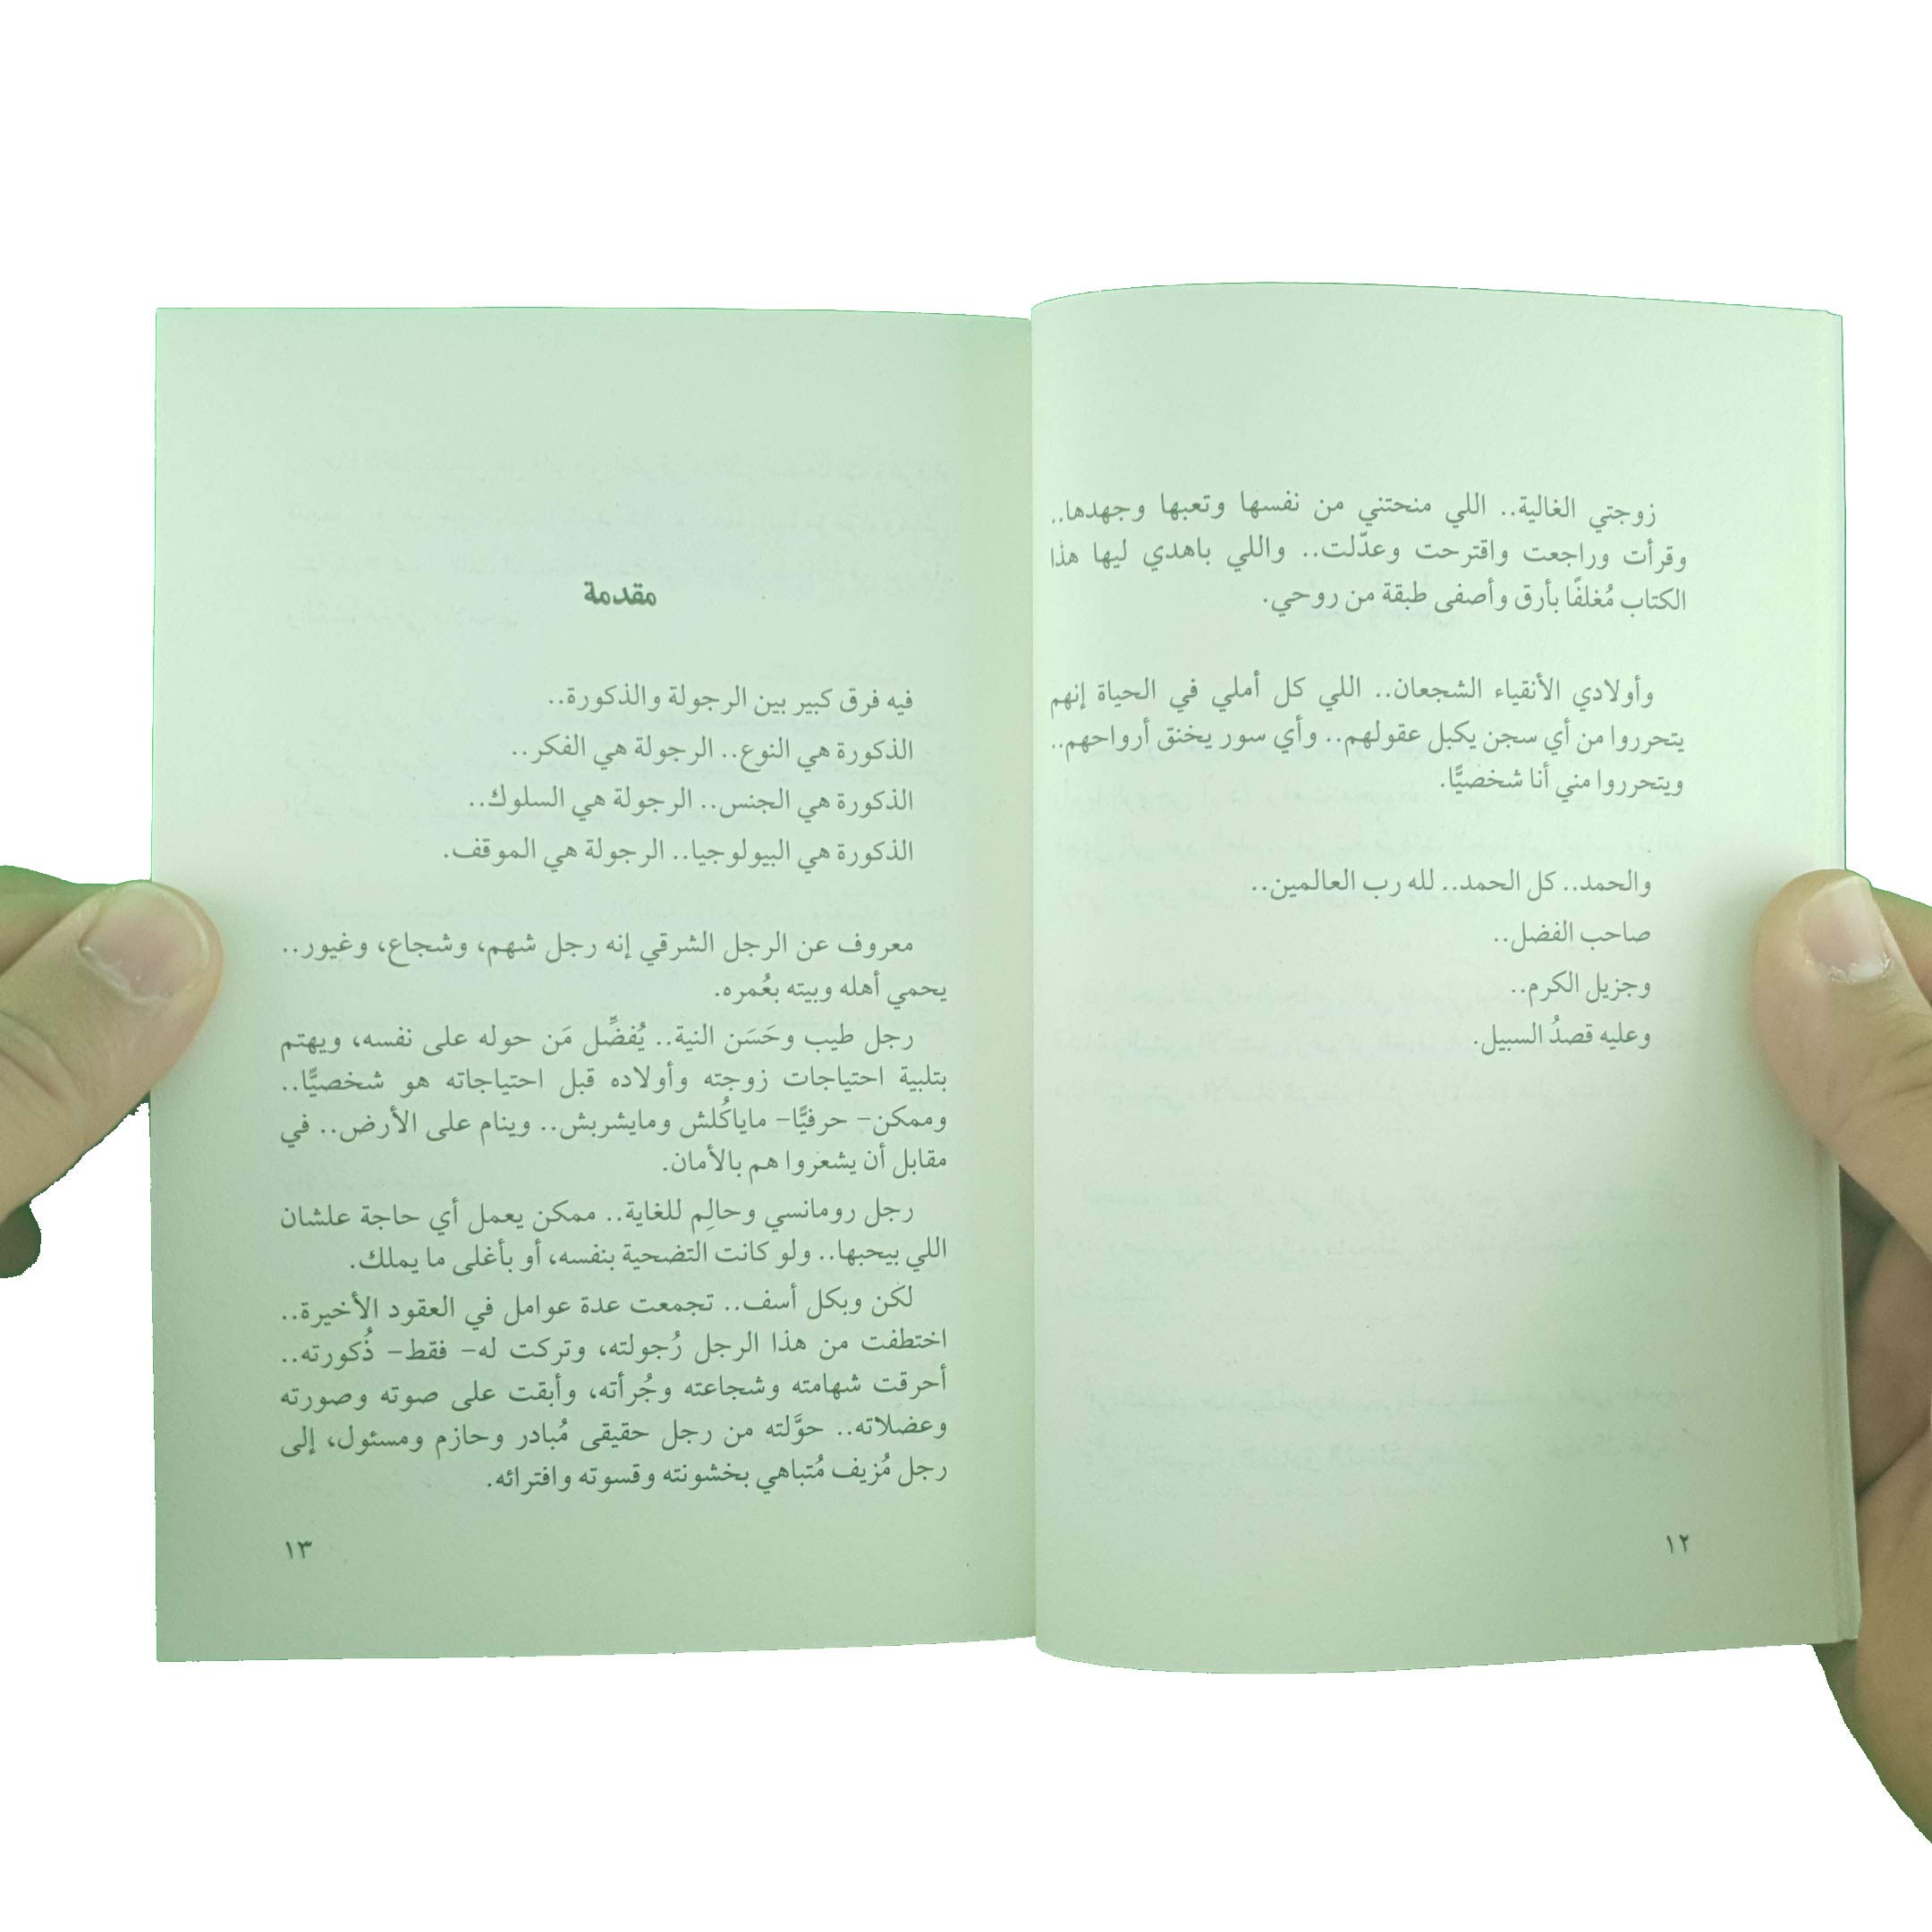 زوجتي الغالية.. اللي منحتني من نفسها وتعبها وجهدها..
وقرأت وراجعت واقترحت وعدّلت.. واللي باهدي ليها هذا
الكتاب مُغلفًا بأرق وأصفى طبقة من روحي.
وأولادي الأنقياء الشجعان.. اللي كل أملي في الحياة إنهم
يتحرروا من أي سجن يكبل عقولهم.. وأي سور يخنق أرواحهم..
ويتحرروا مني أنا شخصيًّا.
والحمد.. كل الحمد.. لله رب العالمين..
صاحب الفضل..
وجزيل الكرم..
وعليه قصدُ السبيل.
١٢
مقدمة
فيه فرق كبير بين الرجولة والذكورة..
الذكورة هي النوع.. الرجولة هي الفكر..
الذكورة هي الجنس.. الرجولة هي السلوك..
الذكورة هي البيولوجيا.. الرجولة هي الموقف.
معروف عن الرجل الشرقي إنه رجل شهم، وشجاع، وغيور..
يحمي أهله وبيته بعُمره.
رجل طيب وحَسَن النية.. يُفضِّل مَن حوله على نفسه، ويهتم
بتلبية احتياجات زوجته وأولاده قبل احتياجاته هو شخصيًّا..
وممكن- حرفيًّا- ماياكُلش ومايشربش.. وينام على الأرض.. في
مقابل أن يشعروا هم بالأمان.
رجل رومانسي وحالِم للغاية.. ممكن يعمل أي حاجة علشان
اللي بيحبها.. ولو كانت التضحية بنفسه، أو بأغلى ما يملك.
لكن وبكل أسف.. تجمعت عدة عوامل في العقود الأخيرة..
اختطفت من هذا الرجل رُجولته، وتركت له- فقط- ذُكورته..
أحرقت شهامته وشجاعته وجُرأته، وأبقت على صوته وصورته
وعضلاته.. حوَّلته من رجل حقيقى مُبادر وحازم ومسئول، إلى
رجل مُزيف مُتباهي بخشونته وقسوته وافترائه.
١٣